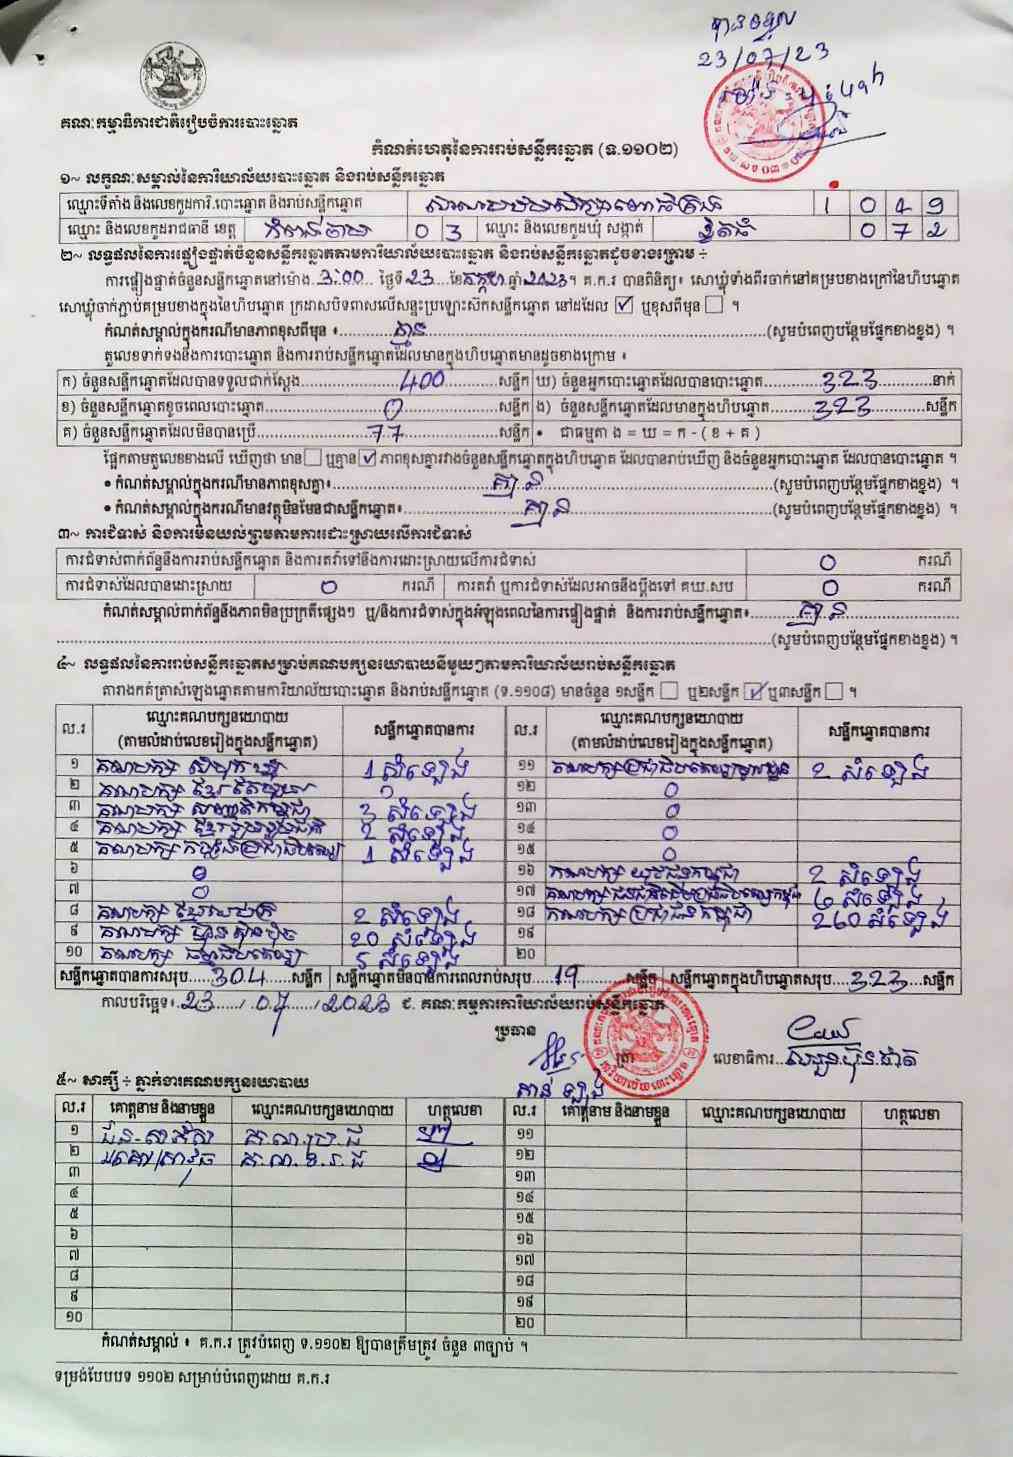 បានទទួល
23/07/23
គណៈកម្មាធិការជាតិរៀបចំការបោះឆ្នោត
កំណត់ហេតុនៃការរាប់សន្លឹកឆ្នោត (ទ.១១០២)
១~ លក្ខណៈសម្គាល់នៃការិយាល័យបោះឆ្នោត និងរាប់សន្លឹកឆ្នោត
ឈ្មោះទីតាំង និងលេខកូដការិ.បោះឆ្នោត និងរាប់សន្លឹកឆ្នោត 1 0 4 9
ឈ្មោះ និងលេខកូដរាជធានី ខេត្ត កំពង់ចាម 0 3 ឈ្មោះ និងលេខកូដឃុំ សង្កាត់ 0 7 2
២~ លទ្ធផលនៃការផ្ទៀងផ្ទាត់ចំនួនសន្លឹកឆ្នោតតាមការិយាល័យបោះឆ្នោត និងរាប់សន្លឹកឆ្នោតដូចខាងក្រោម ÷
ការផ្ទៀងផ្ទាត់ចំនួនសន្លឹកឆ្នោតនៅម៉ោង 3:00 ថ្ងៃទី 23 ខែ កក្កដា ឆ្នាំ 2023 ។ គ.ក.រ បានពិនិត្យ៖ សោឃ្លុំទាំងពីរចាក់នៅគម្របខាងក្រៅនៃហិបឆ្នោត
សោឃ្លុំចាក់ភ្ជាប់គម្របខាងក្នុងនៃហិបឆ្នោត ក្រដាសបិទពាសលើសន្ទះប្រឡោះស៊កសន្លឹកឆ្នោត នៅដដែល ☑ ឬខុសពីមុន ☐ ។
កំណត់សម្គាល់ក្នុងករណីមានភាពខុសពីមុន ៖ គ្មាន (សូមបំពេញបន្ថែមផ្នែកខាងខ្នង) ។
តួលេខទាក់ទងនឹងការបោះឆ្នោត និងការរាប់សន្លឹកឆ្នោតដែលមានក្នុងហិបឆ្នោតមានដូចខាងក្រោម ៖
ក) ចំនួនសន្លឹកឆ្នោតដែលបានទទួលជាក់ស្តែង 400 សន្លឹក ឃ) ចំនួនអ្នកបោះឆ្នោតដែលបានបោះឆ្នោត 323 នាក់
ខ) ចំនួនសន្លឹកឆ្នោតខូចពេលបោះឆ្នោត 0 សន្លឹក ង) ចំនួនសន្លឹកឆ្នោតដែលមានក្នុងហិបឆ្នោត 323 សន្លឹក
គ) ចំនួនសន្លឹកឆ្នោតដែលមិនបានប្រើ 77 សន្លឹក • ជាធម្មតា ង = ឃ = ក - ( ខ + គ )
ផ្អែកតាមតួលេខខាងលើ ឃើញថា មាន ☐ ឬគ្មាន ☑ ភាពខុសគ្នារវាងចំនួនសន្លឹកឆ្នោតក្នុងហិបឆ្នោត ដែលបានរាប់ឃើញ និងចំនួនអ្នកបោះឆ្នោត ដែលបានបោះឆ្នោត ។
• កំណត់សម្គាល់ក្នុងករណីមានភាពខុសគ្នា៖ គ្មាន (សូមបំពេញបន្ថែមផ្នែកខាងខ្នង) ។
• កំណត់សម្គាល់ក្នុងករណីមានវត្ថុមិនមែនជាសន្លឹកឆ្នោត៖ គ្មាន (សូមបំពេញបន្ថែមផ្នែកខាងខ្នង) ។
៣~ ការជំទាស់ និងការមិនយល់ព្រមតាមការដោះស្រាយលើការជំទាស់
ការជំទាស់ពាក់ព័ន្ធនឹងការរាប់សន្លឹកឆ្នោត និងការតវ៉ាទៅនឹងការដោះស្រាយលើការជំទាស់ 0 ករណី
ការជំទាស់ដែលបានដោះស្រាយ 0 ករណី ការតវ៉ា ឬការជំទាស់ដែលអាចនឹងប្តឹងទៅ គឃ.សប 0 ករណី
កំណត់សម្គាល់ពាក់ព័ន្ធនឹងភាពមិនប្រក្រតីផ្សេងៗ ឬ/និងការជំទាស់ក្នុងអំឡុងពេលនៃការផ្ទៀងផ្ទាត់ និងការរាប់សន្លឹកឆ្នោត៖ គ្មាន
(សូមបំពេញបន្ថែមផ្នែកខាងខ្នង) ។
៤~ លទ្ធផលនៃការរាប់សន្លឹកឆ្នោតសម្រាប់គណបក្សនយោបាយនីមួយៗតាមការិយាល័យរាប់សន្លឹកឆ្នោត
តារាងកត់ត្រាសំឡេងឆ្នោតតាមការិយាល័យបោះឆ្នោត និងរាប់សន្លឹកឆ្នោត (ទ.១១០៨) មានចំនួន ១សន្លឹក ☐ ឬ២សន្លឹក ☑ ឬ៣សន្លឹក ☐ ។
ល.រ ឈ្មោះគណបក្សនយោបាយ (តាមលំដាប់លេខរៀងក្នុងសន្លឹកឆ្នោត) សន្លឹកឆ្នោតបានការ ល.រ ឈ្មោះគណបក្សនយោបាយ (តាមលំដាប់លេខរៀងក្នុងសន្លឹកឆ្នោត) សន្លឹកឆ្នោតបានការ
១ គណបក្ស 1 សំឡេង ១១ គណបក្ស 2 សំឡេង
២ គណបក្ស ខ្មែរ ១២ 0
៣ គណបក្ស 3 សំឡេង ១៣ 0
៤ គណបក្ស ខ្មែររួបរួមជាតិ 2 សំឡេង ១៤ 0
៥ គណបក្ស 1 សំឡេង ១៥ 0
៦ 0 ១៦ គណបក្ស យុវជនកម្ពុជា 2 សំឡេង
៧ 0 ១៧ គណបក្ស 6 សំឡេង
៨ គណបក្ស 2 សំឡេង ១៨ គណបក្ស ប្រជាជនកម្ពុជា 260 សំឡេង
៩ គណបក្ស ហ្វ៊ុនស៊ិនប៉ិច 20 សំឡេង ១៩
១០ គណបក្ស ធម្មាធិបតេយ្យ 5 សំឡេង ២០
សន្លឹកឆ្នោតបានការសរុប 304 សន្លឹក សន្លឹកឆ្នោតមិនបានការពេលរាប់សរុប 19 សន្លឹក សន្លឹកឆ្នោតក្នុងហិបឆ្នោតសរុប 323 សន្លឹក
កាលបរិច្ឆេទ៖ 23 / 07 / 2023 ជ. គណៈកម្មការការិយាល័យរាប់សន្លឹកឆ្នោត
ប្រធាន
លេខាធិការ
៥~ សាក្សី ÷ ភ្នាក់ងារគណបក្សនយោបាយ
ល.រ គោត្តនាម និងនាមខ្លួន ឈ្មោះគណបក្សនយោបាយ ហត្ថលេខា ល.រ គោត្តនាម និងនាមខ្លួន ឈ្មោះគណបក្សនយោបាយ ហត្ថលេខា
១ ១១
២ ១២
៣ ១៣
៤ ១៤
៥ ១៥
៦ ១៦
៧ ១៧
៨ ១៨
៩ ១៩
១០ ២០
កំណត់សម្គាល់ ៖ គ.ក.រ ត្រូវបំពេញ ទ.១១០២ ឱ្យបានត្រឹមត្រូវ ចំនួន ៣ច្បាប់ ។
ទម្រង់បែបបទ ១១០២ សម្រាប់បំពេញដោយ គ.ក.រ